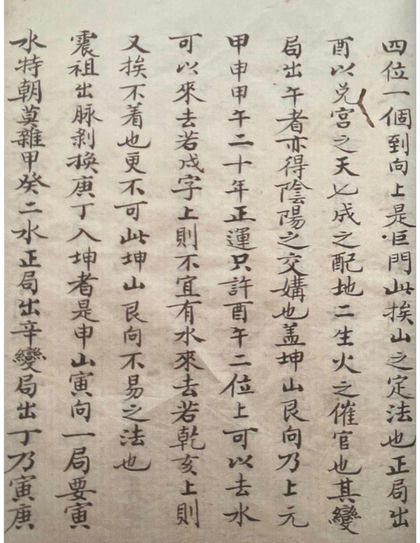 四位一個到向上是巨門此挨山之定法也正局出
酉以兌宮之天七成之配地二生火之催官也其變
局出午者亦得陰陽之交媾也盖坤山艮向乃上元
甲申甲午二十年正運只許酉午二位上可以去水
可以來去若戌字上則不宜有水來去若乾亥上則
又挨不着也更不可此坤山艮向不易之法也
震祖出脉剥換庚丁入坤者是申山寅向一局要寅
水特朝莫雜甲癸二水正局出辛變局出丁乃寅庚